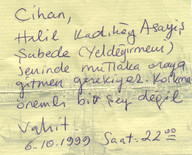 Cihan,
Halil Kadıköy Asayiş
Şubede (Yeldeğirmeni)
Seninde mutlaka oraya
gitmen gerekiyor. Korkma
önemli bir şey değil
Vahit
6.10.1999 Saat: 22⁰⁰